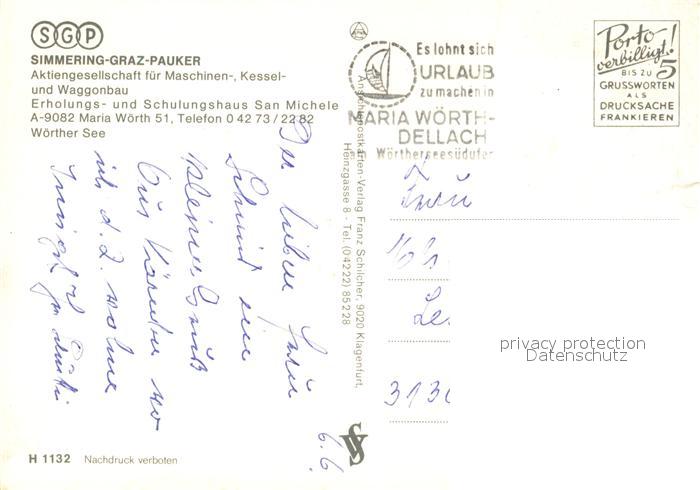 SGP
SIMMERING-GRAZ-PAUKER
Aktiengesellschaft für Maschinen-, Kessel-
und Waggonbau
Erholungs- und Schulungshaus San Michele
A-9082 Maria Wörth 51, Telefon 0 42 73 / 22 82
Wörther See
Es lohnt sich
URLAUB
zu machen in
MARIA WÖRTH-
DELLACH
Wörtherseesüdufer
Porto
verbilligt!
BIS ZU 5
GRUSSWORTEN
ALS
DRUCKSACHE
FRANKIEREN
Der lieben Frau
Schmid ein
kleiner Gruß
aus Kärnten wo
ich d. Z. wohne
6.6.
Ansichtspostkarten-Verlag Franz Schilcher, 9020 Klagenfurt,
Heinzgasse 8 - Tel. (0 42 22) 85 2 28
Frau
313
privacy protection
Datenschutz
H 1132 Nachdruck verboten